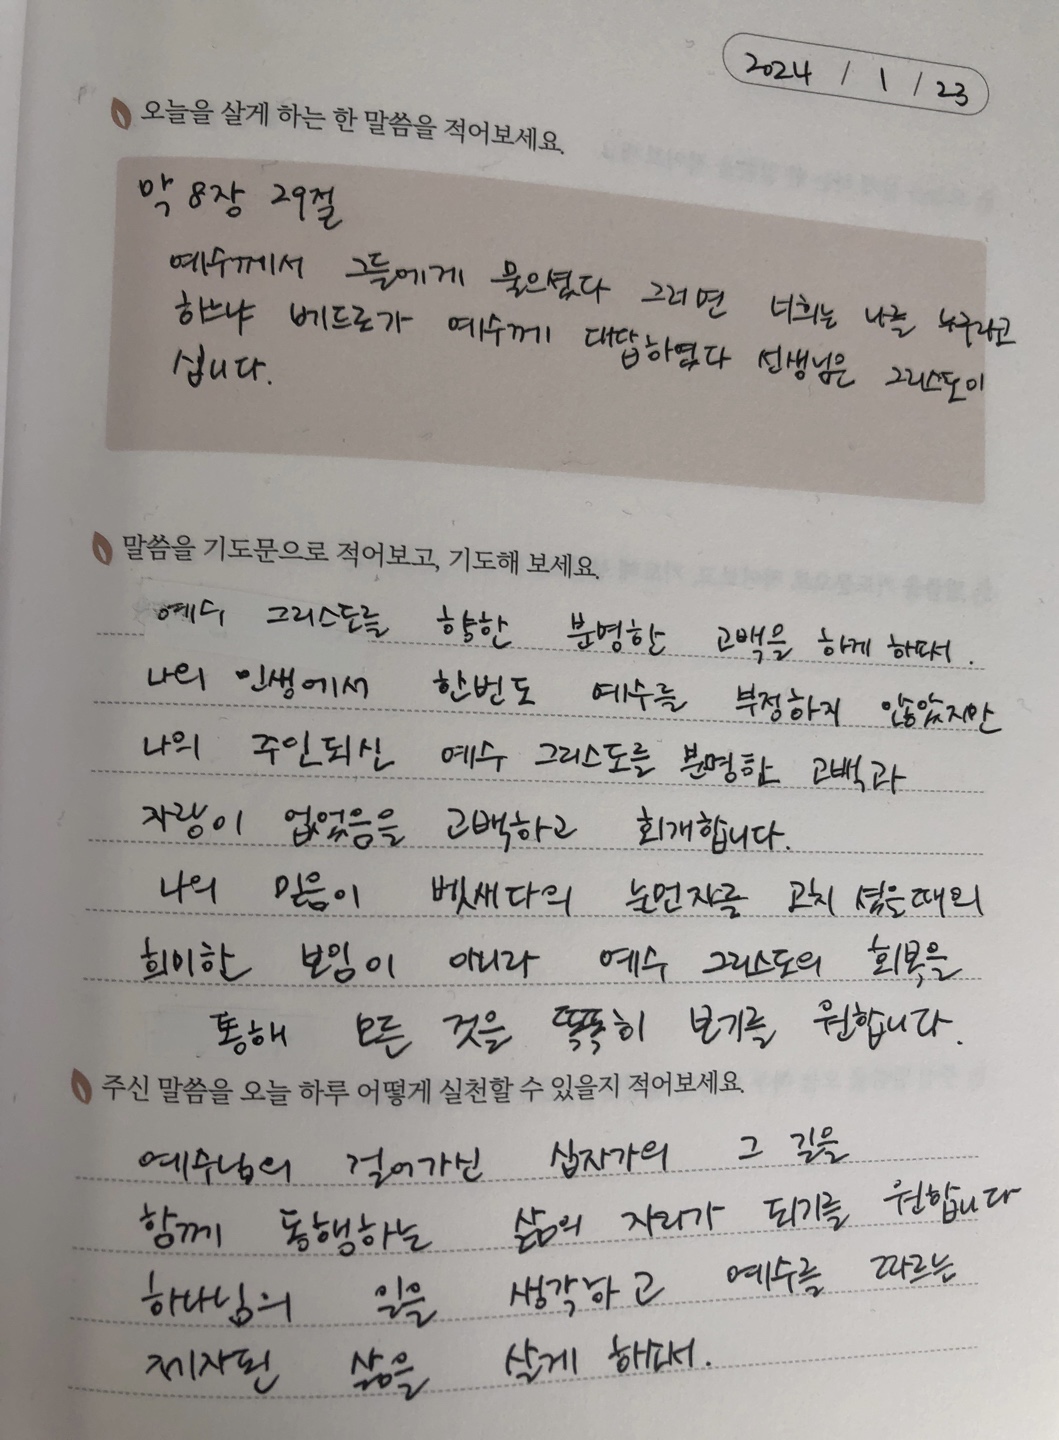 2024 / 1 / 23
오늘을 살게 하는 한 말씀을 적어보세요.
막 8장 29절
예수께서 그들에게 물으셨다 그러면 너희는 나를 누구라고
하느냐 베드로가 예수께 대답하였다 선생님은 그리스도이
십니다.
말씀을 기도문으로 적어보고, 기도해 보세요.
예수 그리스도를 향한 분명한 고백을 하게 하소서.
나의 인생에서 한번도 예수를 부정하지 않았지만
나의 주인되신 예수 그리스도를 분명한 고백과
자랑이 없었음을 고백하고 회개합니다.
나의 믿음이 벳새다의 눈먼자를 고치셨을때의
희미한 보임이 아니라 예수 그리스도의 회복을
통해 모든 것을 똑똑히 보기를 원합니다.
주신 말씀을 오늘 하루 어떻게 실천할 수 있을지 적어보세요.
예수님의 걸어가신 십자가의 그 길을
함께 동행하는 삶의 자리가 되기를 원합니다
하나님의 일을 생각하고 예수를 따르는
제자된 삶을 살게 하소서.